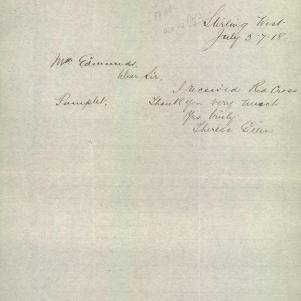 Stirling West.
July 3-7-18.
Mr Edmunds.
Dear Sir.
I received Red Cross
Pamplet. Thank you very much
Yrs truly
Theresa